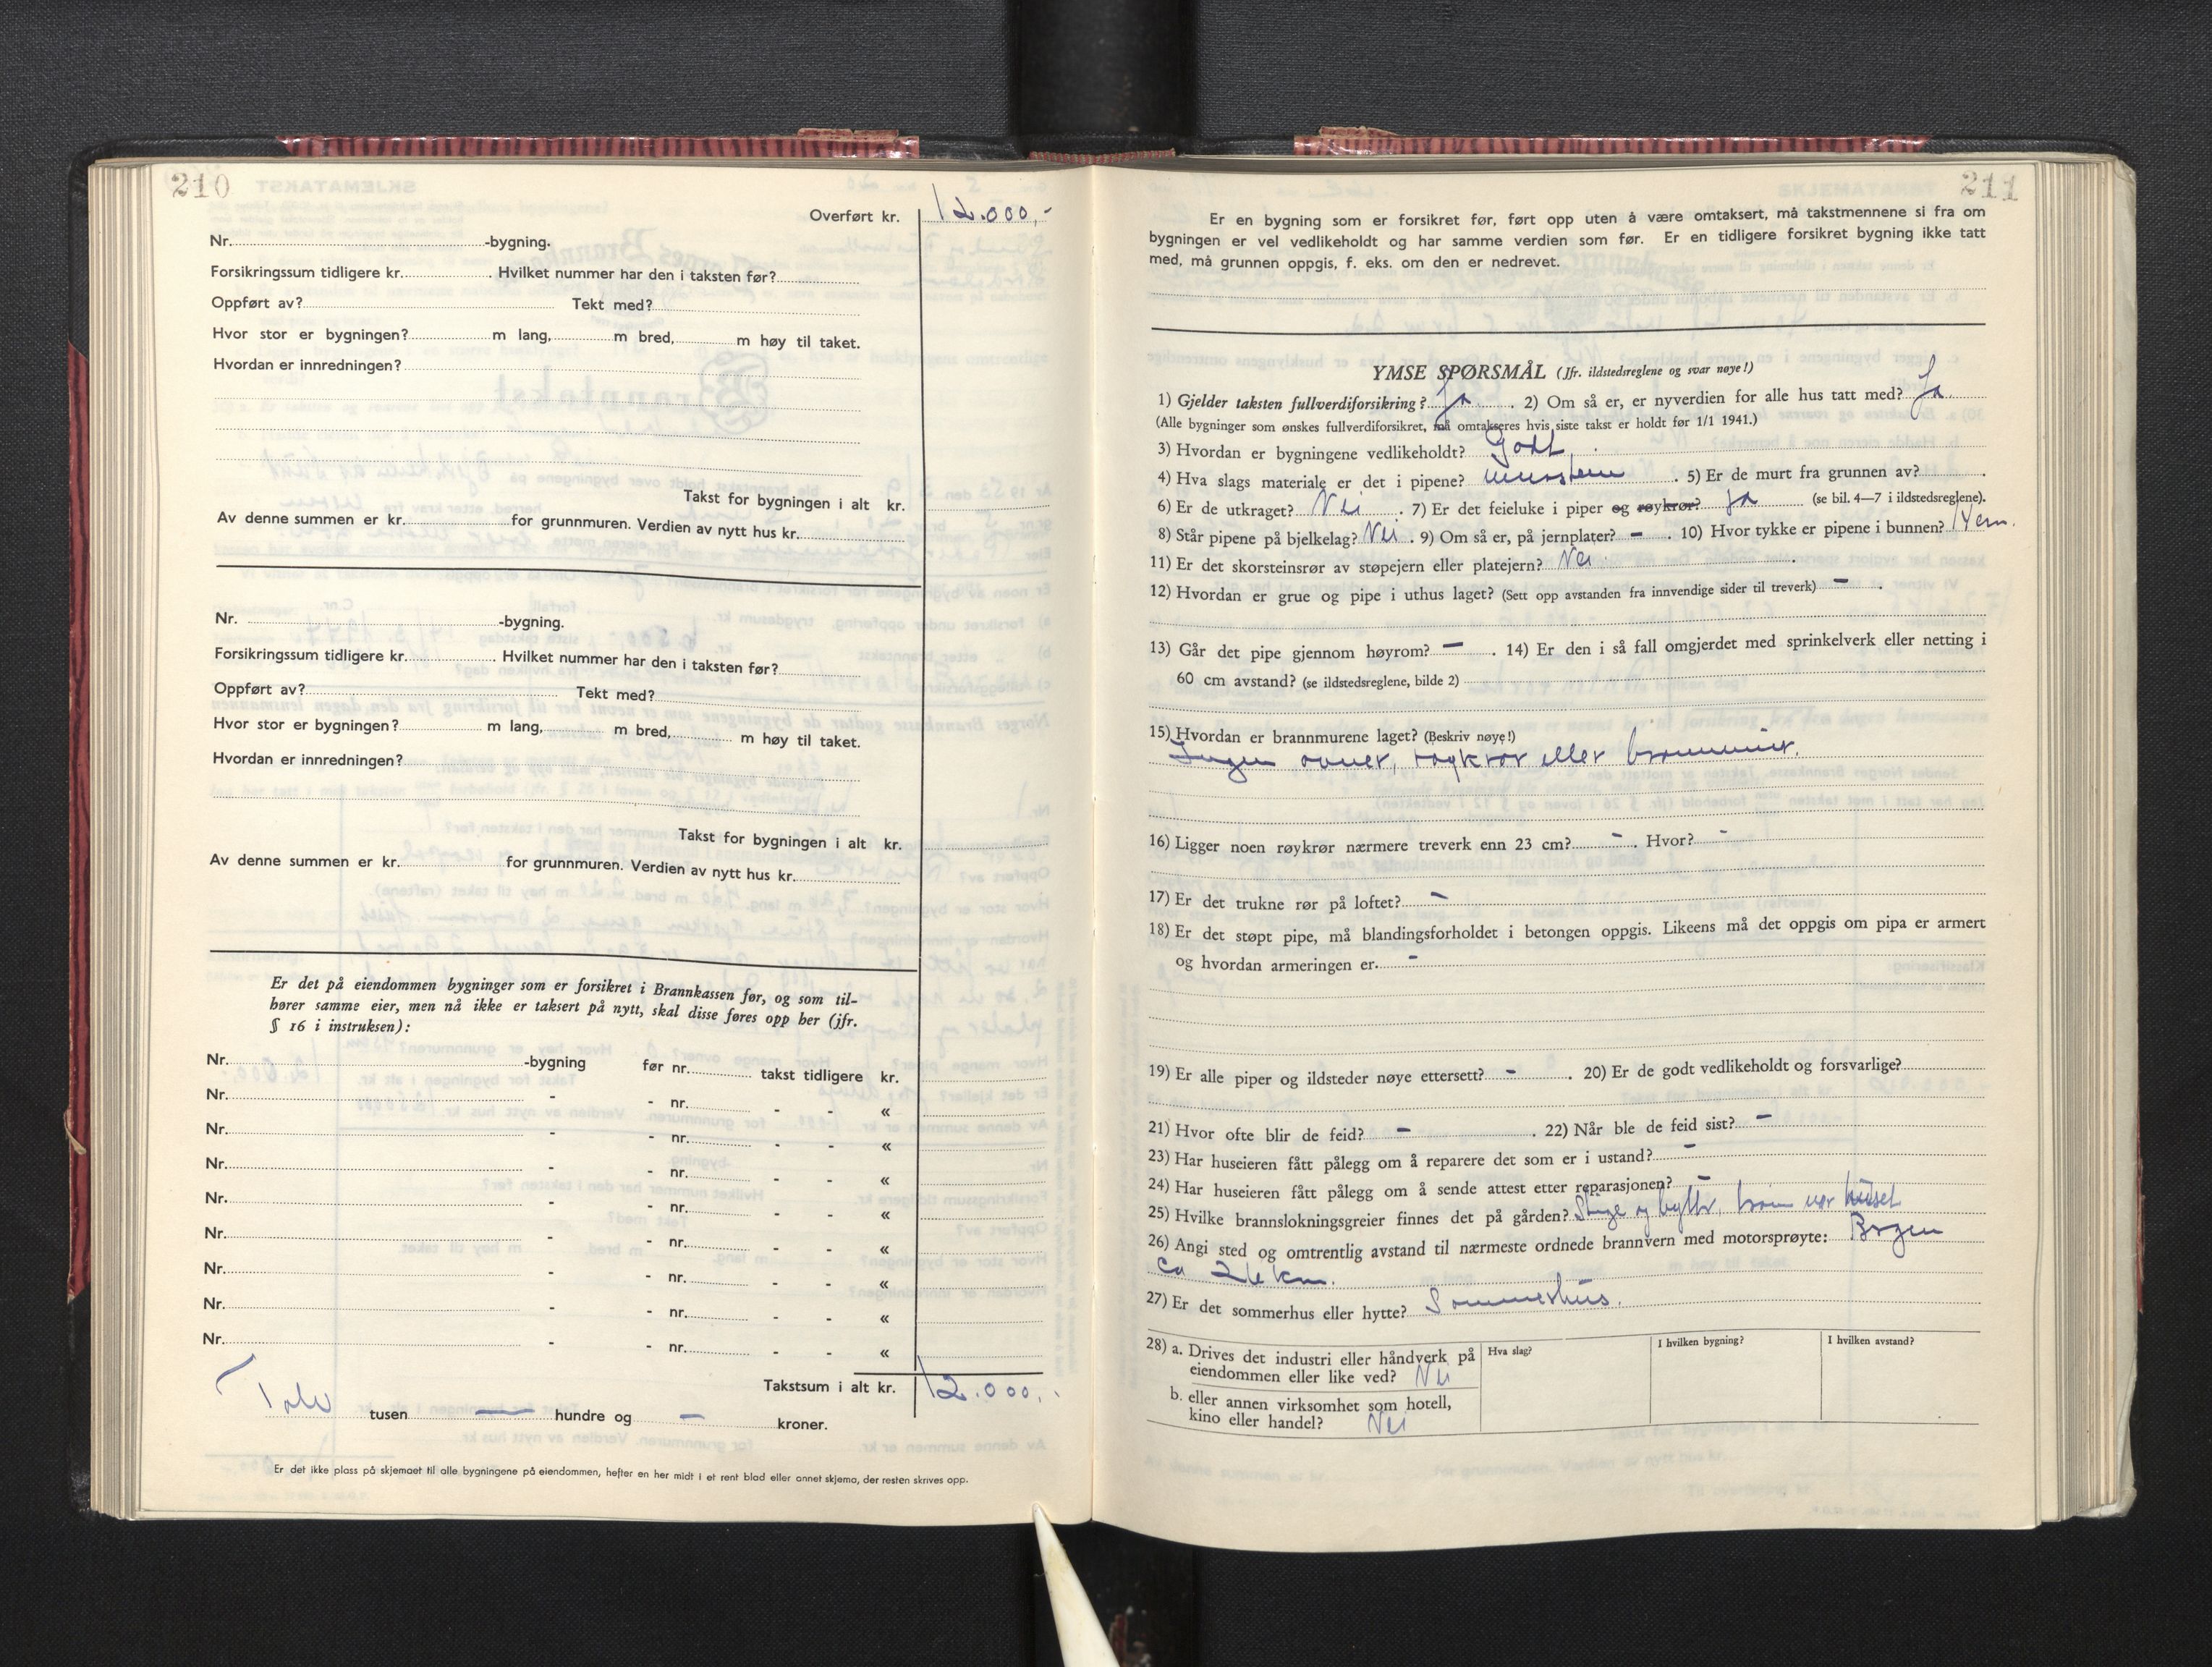 210
Overført kr. 12.000,-
Nr. -bygning.
Forsikringssum tidligere kr. . Hvilket nummer har den i taksten før?
Oppført av? Tekt med?
Hvor stor er bygningen? m lang, m bred, m høy til taket.
Hvordan er innredningen?
Takst for bygningen i alt kr.
Av denne summen er kr. for grunnmuren. Verdien av nytt hus kr.
Nr. -bygning.
Forsikringssum tidligere kr. . Hvilket nummer har den i taksten før?
Oppført av? Tekt med?
Hvor stor er bygningen? m lang, m bred, m høy til taket.
Hvordan er innredningen?
Takst for bygningen i alt kr.
Av denne summen er kr. for grunnmuren. Verdien av nytt hus kr.
Er det på eiendommen bygninger som er forsikret i Brannkassen før, og som til-
hører samme eier, men nå ikke er taksert på nytt, skal disse føres opp her (jfr.
§ 16 i instruksen):
Nr. -bygning før nr. takst tidligere kr.
Nr. - - nr. - - «
Nr. - - nr. - - «
Nr. - - nr. - - «
Nr. - - nr. - - «
Nr. - - nr. - - «
Nr. - - nr. - - «
Nr. - - nr. - - «
Nr. - - nr. - - «
Takstsum i alt kr. 12.000,-
Tolv tusen — hundre og — kroner.
Er det ikke plass på skjemaet til alle bygningene på eiendommen, hefter en her midt i et rent blad eller annet skjema, der resten skrives opp.
211
Er en bygning som er forsikret før, ført opp uten å være omtaksert, må takstmennene si fra om
bygningen er vel vedlikeholdt og har samme verdien som før. Er en tidligere forsikret bygning ikke tatt
med, må grunnen oppgis, f. eks. om den er nedrevet.
YMSE SPØRSMÅL (Jfr. ildstedsreglene og svar nøye!)
1) Gjelder taksten fullverdiforsikring? Ja . 2) Om så er, er nyverdien for alle hus tatt med? Ja.
(Alle bygninger som ønskes fullverdiforsikret, må omtakseres hvis siste takst er holdt før 1/1 1941.)
3) Hvordan er bygningene vedlikeholdt? Godt.
4) Hva slags materiale er det i pipene? murstein . 5) Er de murt fra grunnen av? .
6) Er de utkraget? Nei . 7) Er det feieluke i piper og røykrør? Ja (se bil. 4—7 i ildstedsreglene).
8) Står pipene på bjelkelag? Nei . 9) Om så er, på jernplater? - . 10) Hvor tykke er pipene i bunnen? 14 cm.
11) Er det skorsteinsrør av støpejern eller platejern? Nei.
12) Hvordan er grue og pipe i uthus laget? (Sett opp avstanden fra innvendige sider til treverk) - .
13) Går det pipe gjennom høyrom? - . 14) Er den i så fall omgjerdet med sprinkelverk eller netting i
60 cm avstand? (se ildstedsreglene, bilde 2)
15) Hvordan er brannmurene laget? (Beskriv nøye!)
Ingen ovner, røykrør eller brannmurer.
16) Ligger noen røykrør nærmere treverk enn 23 cm? - . Hvor? -
17) Er det trukne rør på loftet? -
18) Er det støpt pipe, må blandingsforholdet i betongen oppgis. Likeens må det oppgis om pipa er armert
og hvordan armeringen er. -
19) Er alle piper og ildsteder nøye ettersett? - . 20) Er de godt vedlikeholdt og forsvarlige?
21) Hvor ofte blir de feid? - . 22) Når ble de feid sist? -
23) Har huseieren fått pålegg om å reparere det som er i ustand? -
24) Har huseieren fått pålegg om å sende attest etter reparasjonen? -
25) Hvilke brannslokningsgreier finnes det på gården? Stige og bøtter, brønn nær huset
26) Angi sted og omtrentlig avstand til nærmeste ordnede brannvern med motorsprøyte: Bergen
ca 26 km.
27) Er det sommerhus eller hytte? Sommerhus.
28) a. Drives det industri eller håndverk på
eiendommen eller like ved? Nei
Hva slag?
I hvilken bygning?
I hvilken avstand?
b. eller annen virksomhet som hotell,
kino eller handel? Nei